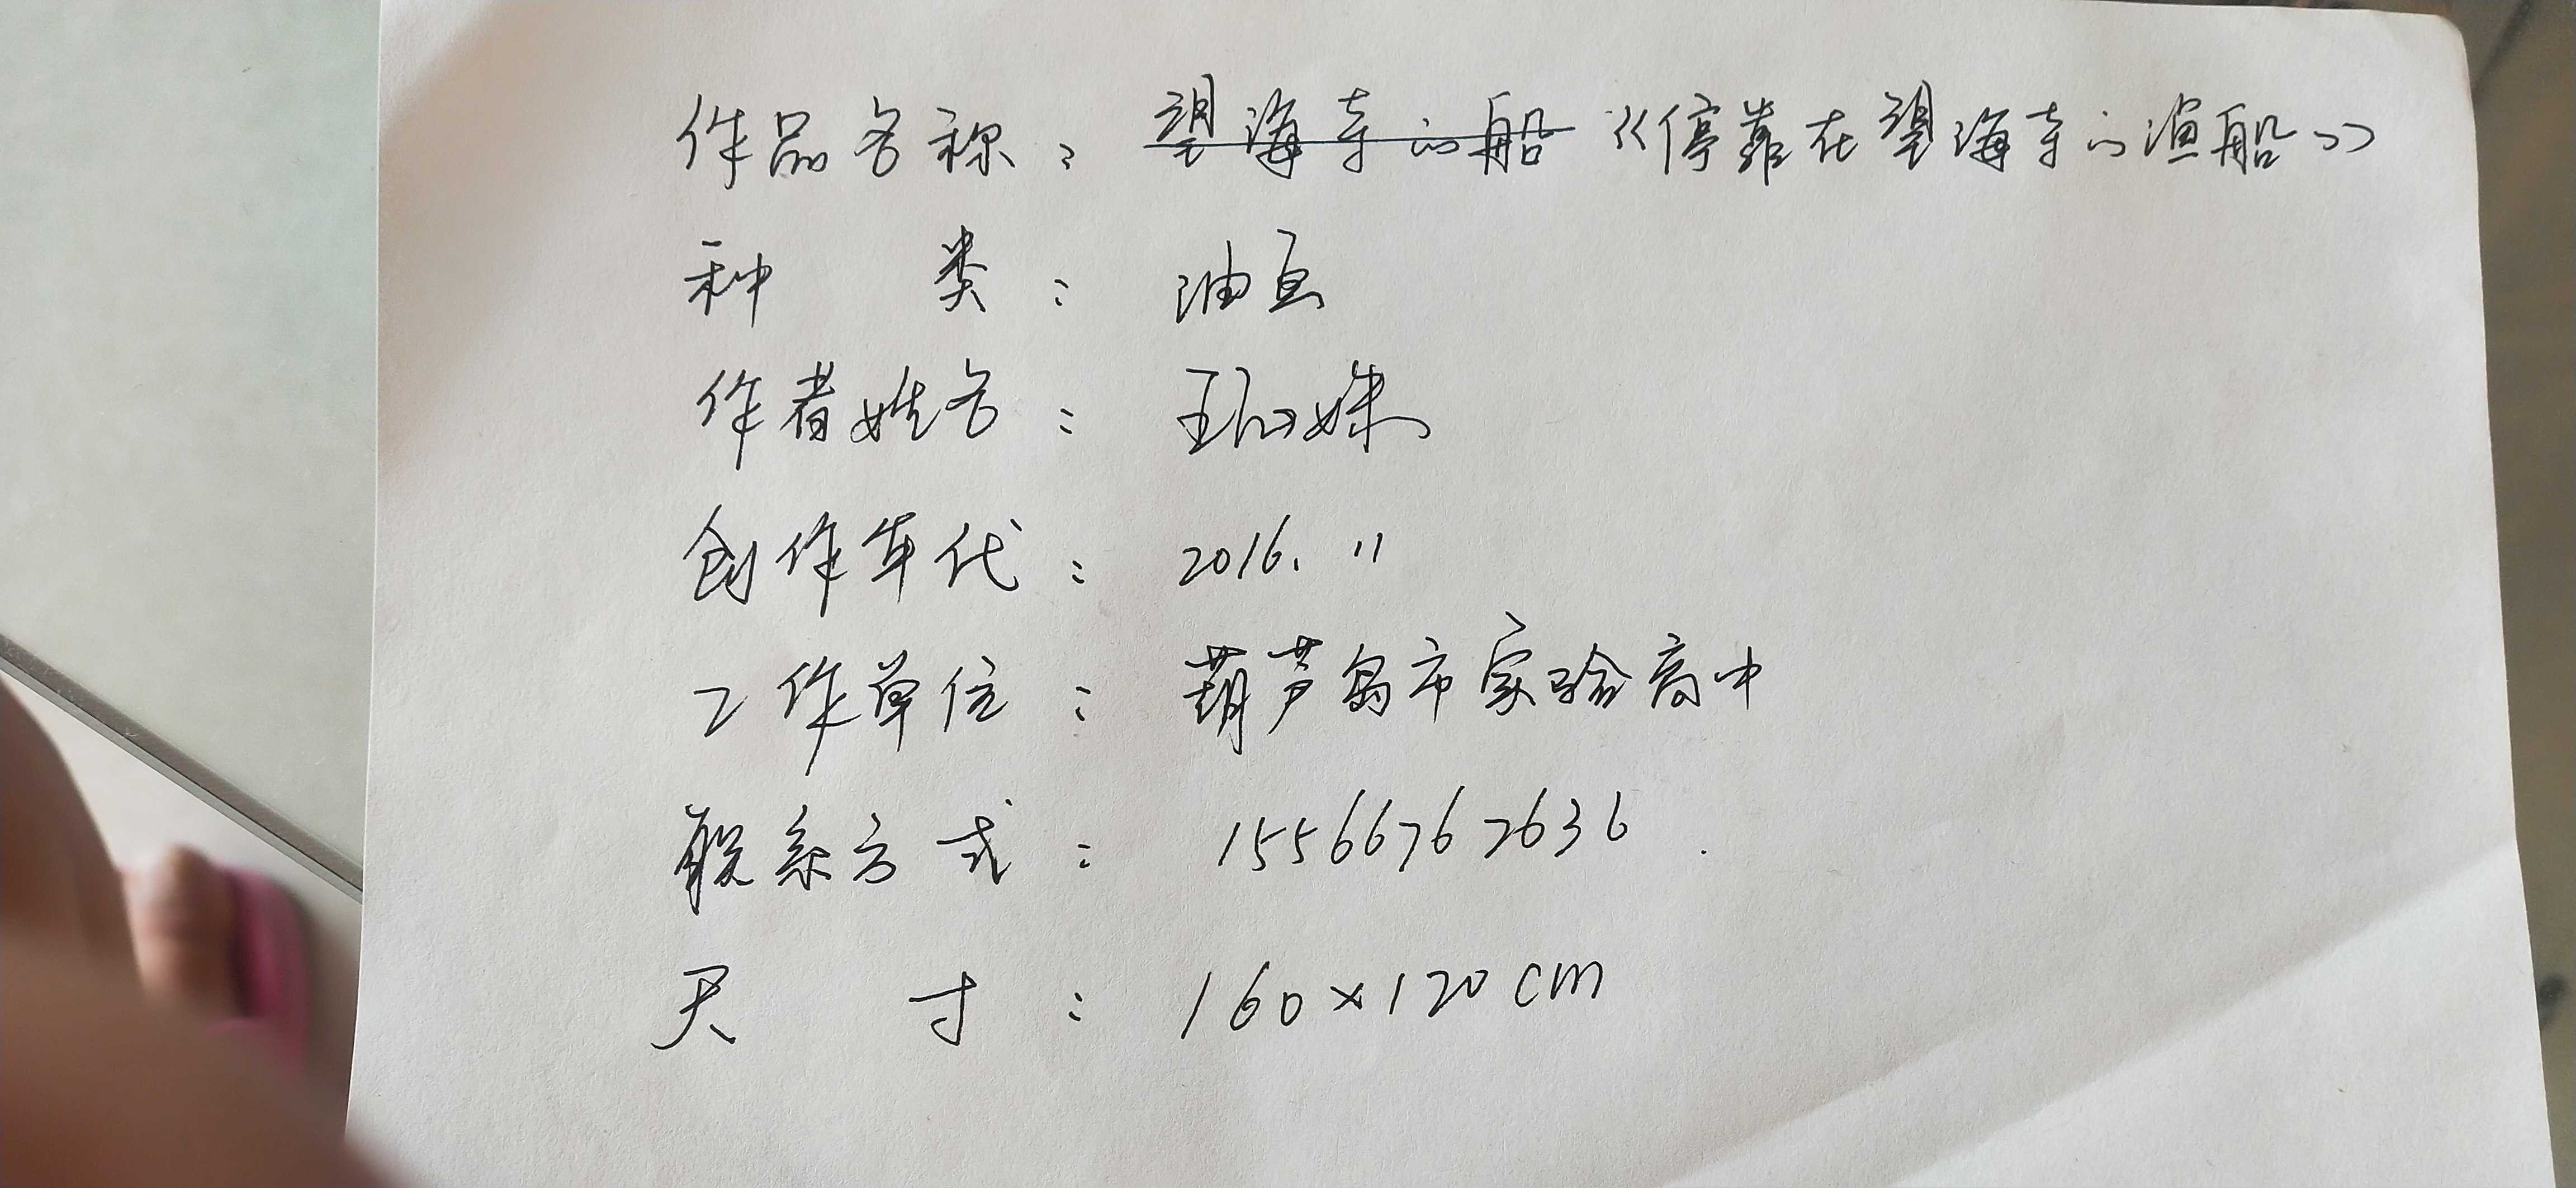 作品名称：望海寺的船《停靠在望海寺的渔船》
种 类：油画
作者姓名：王 姝
创作年代：2016.11
工作单位：葫芦岛市实验高中
联系方式：15566762636
尺 寸：160×120cm